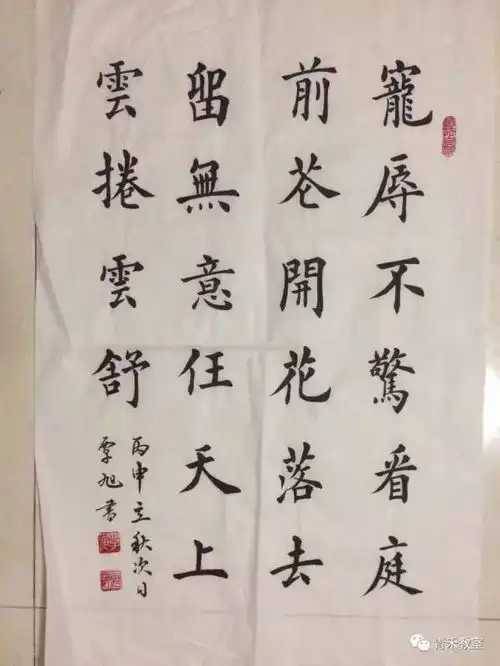 寵辱不驚看庭
前花開花落去
留無意任天上
雲捲雲舒
丙申立秋次日
覃旭書
青禾教室